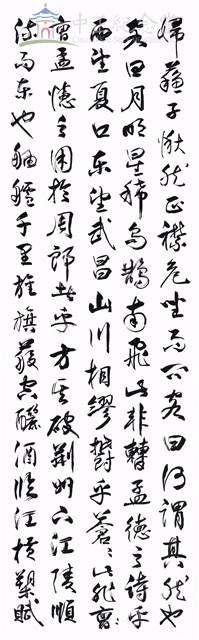 婦蘇子愀然正襟危坐而問客曰何謂其然也
客曰月明星稀烏鵲南飛此非孟德之詩乎
西望夏口東望武昌山川相繆鬱乎蒼蒼此非曹
曹孟德之困於周郎者乎方其破荊州下江陵順
流而東也舳艫千里旌旗蔽空釃酒臨江橫槊賦